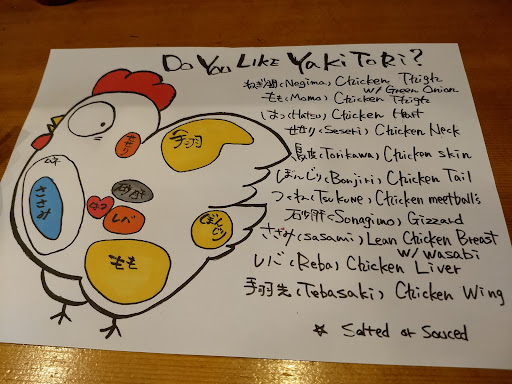 DO YOU LIKE YAKITORI?
ねぎ間 (Negima) Chicken Thigh
w/ Green Onion
もも (Momo) Chicken Thigh
はつ (Hatsu) Chicken Heart
せせり (Seseri) Chicken Neck
鳥皮 (Torikawa) Chicken skin
ぼんじり (Bonjiri) Chicken Tail
つくね (Tsukune) Chicken meetballs
石ゆ肝 (Sonagimo) Gizzard
さざみ (sasami) Lean Chicken Breast
w/ wasabi
レバ (Reba) Chicken Liver
手羽先 (Tebasaki) Chicken Wing
☆ Salted or Sauced
せせり
手羽
ささみ
ハツ
レバ
ぼんじり
もも